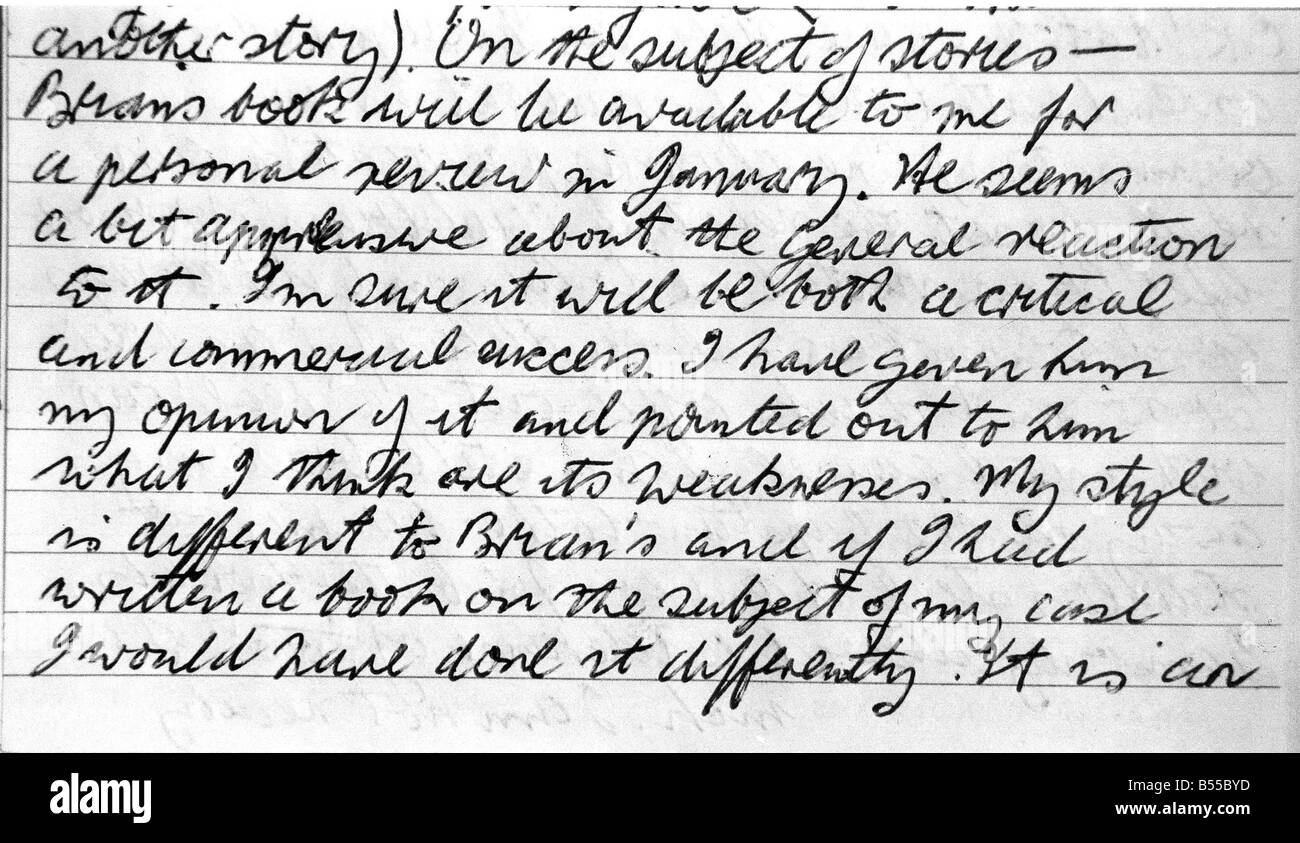 another story). On the subject of stories —
Brians book will be available to me for
a personal review in January. He seems
a bit apprensive about the General reaction
to it. I'm sure it will be both a critical
and commercial success. I have given him
my opinion of it and pointed out to him
what I think are its weaknesses. My style
is different to Brian's and if I had
written a book on the subject of my case
I would have done it differently. It is an
alamy
B55BYD
www.alamy.com